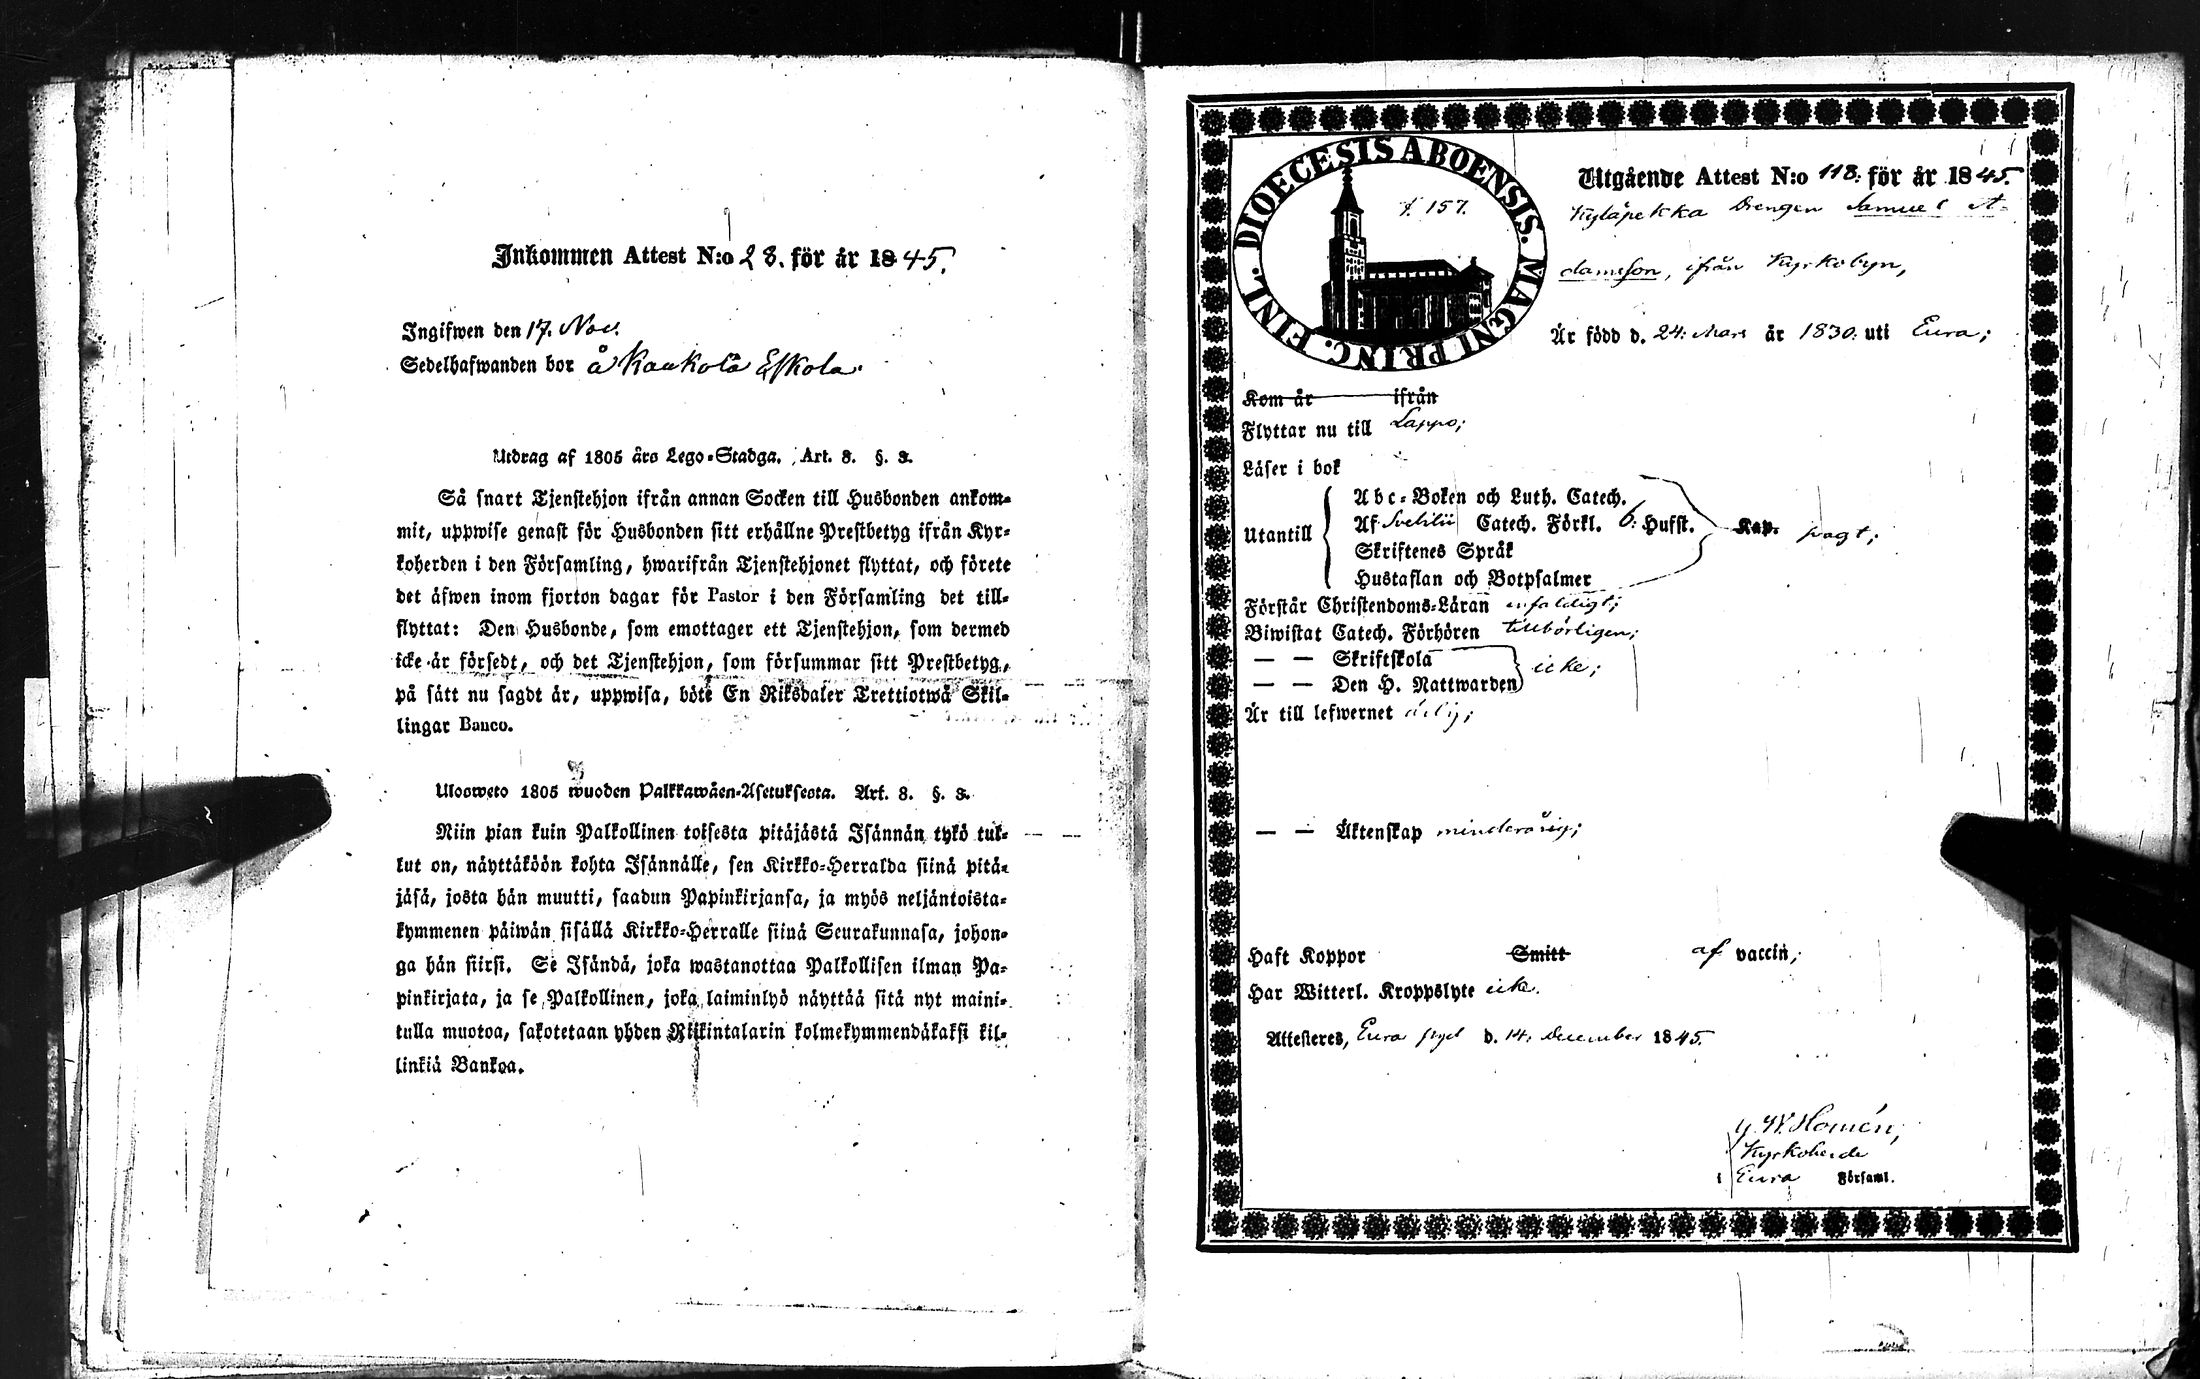 Inkommen Attest N:o 28. för år 1845.
Ingifwen den 17. Nov.
Sedelhafwanden bor å Kaukola Eskola.
Utdrag af 1805 års Lego-Stadga. Art. 8. §. 3.
Så snart Tjenstehjon ifrån annan Socken till Husbonden ankom-
mit, uppwise genast för Husbonden sitt erhållne Prestbetyg ifrån Kyr-
koherden i den Församling, hwarifrån Tjenstehjonet flyttat, och förete
det äfwen inom fjorton dagar för Pastor i den Församling det till-
flyttat: Den Husbonde, som emottager ett Tjenstehjon, som dermed
icke är försedt, och det Tjenstehjon, som försummar sitt Prestbetyg,
på sätt nu sagdt är, uppwisa, böte En Riksdaler Trettiotwå Skil-
lingar Banco.
Ulosweto 1805 wuoden Palkkawäen-Asetuksesta. Art. 8. §. 3.
Niin pian kuin Palkollinen toisesta pitäjästä Isännän tykö tul-
lut on, näyttäköön kohta Isännälle, sen Kirkko-Herralda siinä pitä-
jäsä, josta hän muutti, saadun Papinkirjansa, ja myös neljäntoista-
kymmenen päiwän sisällä Kirkko-Herralle siinä Seurakunnasa, johon-
ga hän siirsi. Se Isändä, joka wastanottaa Palkollisen ilman Pa-
pinkirjata, ja se Palkollinen, joka laiminlyö näyttää sitä nyt maini-
tulla muotoa, sakotetaan yhden Riikintalarin kolmekymmendäkaksi kil-
linkiä Bankoa.
DIOECESIS ABOENSIS. MAGNI PRINC. FINL.
f. 157.
Utgående Attest N:o 118: för år 1845.
Kyläpekka Drengen Samuel A-
damsson, ifrån Kyrkobyn,
Är född d. 24: Mars år 1830: uti Eura;
Kom år ifrån
Flyttar nu till Lappo;
Läser i bok
Utantill
Abc-Boken och Luth. Catech.
Af Svebilii Catech. Förkl. 6: Hufst. Kap. svagt;
Skriftenes Språk
Hustaflan och Botpsalmer
Förstår Christendoms-Läran enfaldigt;
Biwistat Catech. Förhören tillbörligen;
— — Skriftskola
— — Den H. Nattwarden icke;
Är till lefwernet ärlig;
— — Äktenskap minderårig;
Haft Koppor Smitt af vaccin;
Har Witterl. Kroppslyte icke.
Attesteres, Eura d. 14. December 1845.
G. W. Homén,
Kyrkoherde
i Eura Församl.